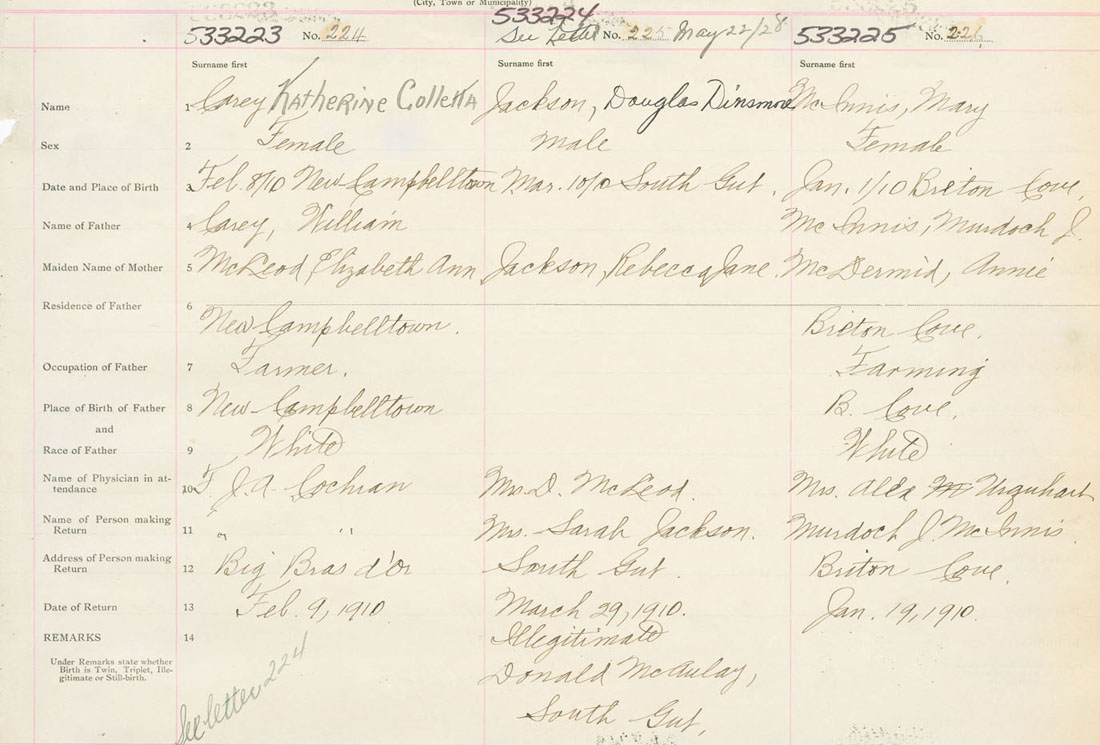 (City, Town or Municipality)
533223 No. 224
533224
See Letter No. 225 May 22/28
533225 No. 226
Surname first Surname first Surname first
Name 1 Carey Katherine Colletta Jackson, Douglas Dinsmore McInnis, Mary
Sex 2 Female Male Female
Date and Place of Birth 3 Feb. 8/10 New Campbelltown Mar. 10/10 South Gut. Jan. 1/10 Breton Cove,
Name of Father 4 Carey, William McInnis, Murdoch J.
Maiden Name of Mother 5 McLeod Elizabeth Ann Jackson, Rebecca Jane. McDermid, Annie
Residence of Father 6 New Campbelltown. Breton Cove.
Occupation of Father 7 Farmer. Farming
Place of Birth of Father 8 New Campbelltown B. Cove.
and
Race of Father 9 White White
Name of Physician in at-
tendance 10 J. A. Cochran Mrs. D. McLeod. Mrs. Alex Urquhart
Name of Person making
Return 11 " " Mrs. Sarah Jackson. Murdoch J. McInnis.
Address of Person making
Return 12 Big Bras d'Or South Gut. Briton Cove.
Date of Return 13 Feb. 9, 1910 March 29, 1910. Jan. 19, 1910.
REMARKS 14 Illegitimate
Under Remarks state whether
Birth is Twin, Triplet, Ille-
gitimate or Still-birth.
Donald McAulay,
South Gut,
See letter 224